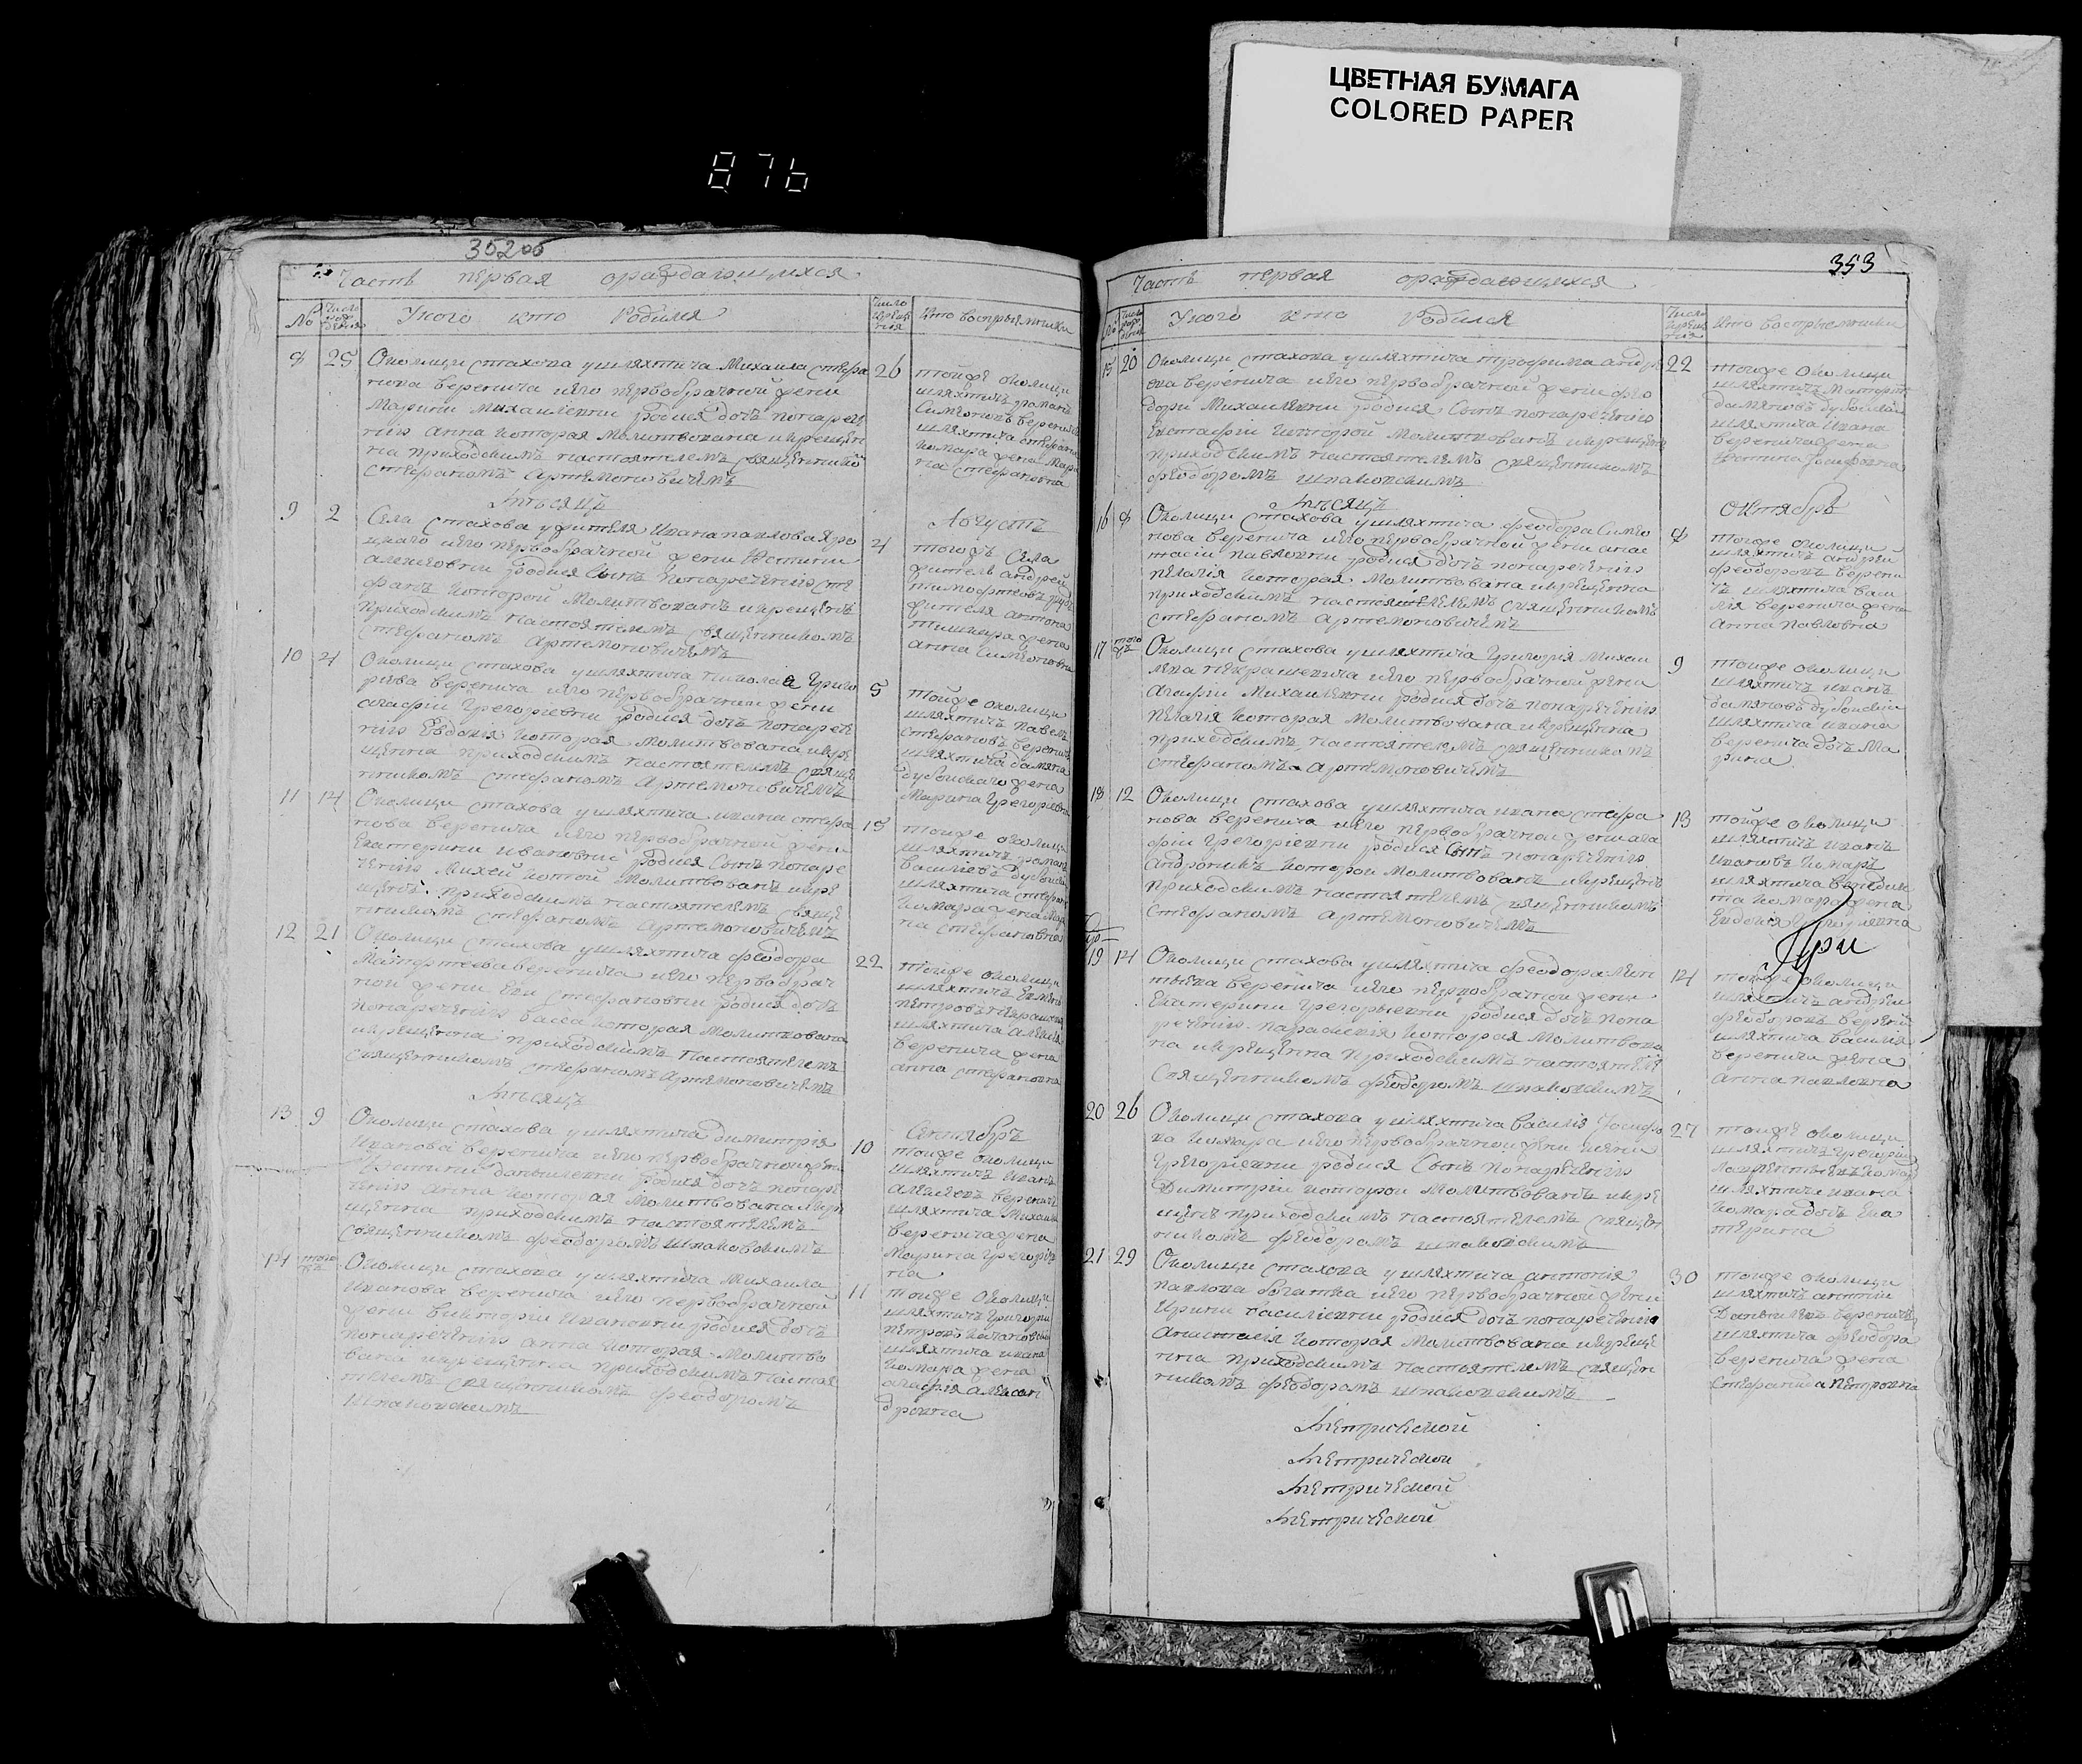 ЦВЕТНАЯ БУМАГА
COLORED PAPER
876
352об
Часть первая ораждающихся
№
Число рождения
У кого кто Родился
Число крещения
Кто восприемники
8 25
Околицы стахова ушляхтича Михаила стефа
нова веренича иего первобрачной жены
Марины Михаиленны родися дочь нонаречен
ниїя анна которая Молитвована икрещен
на приходскимъ настоятелемъ священнико
стефаномъ Артемоновичемъ
26
тойже околицы
шляхтичъ романъ
Симеоновъ веренич
шляхтича стефана
комара жена Мари
на стефановна
Мѣсяцъ
Августъ
9 2
Села стахова ужителя Ивана павлова
иего первобрачной жены Юстины
алексіовны родися сынъ нонареченниїя сте
фанъ которой Молитвованъ икрещенъ
приходскимъ настоятелемъ священникомъ
стефаномъ Артемоновичемъ
4
тогожъ села
житель андрей
тимофтеовъ
жителя антона
жена
анна Симеоновна
10 4
Околицы стахова ушляхтича николая Григо
риева веренича иего первобрачной жены
агафіи Грегориевны родися дочь нонарече
ниїя Евдокія которая Молитвована икре
щенна приходскимъ настоятелемъ свяще
нникомъ стефаномъ Артемоновичемъ
5
тойже околицы
шляхтичъ павелъ
стефановъ веренич
шляхтича дамяна
дубойскаго жена
Марина Грегориевна
11 14
Околицы стахова ушляхтича ивана стефа
нова веренича иего первобрачной жены
Екатерины ивановны родися Сынъ нонаре
ченниїя Михей котой Молитвованъ икре
щенъ приходскимъ настоятелемъ свяще
нникомъ стефаномъ Артемоновичемъ
15
тойже околицы
шляхтичъ романъ
василіевъ дубойски
шляхтича стефана
комара жена Мари
на стефановна
12 21
Околицы стахова ушляхтича феодора
Матфтеева веренича иего первобрач
ной жены Евы стефановны родися дочь
нонареченниїя васса которая Молитвована
икрещенна приходскимъ настоятелемъ
священникомъ стефаномъ Артемоновичемъ
22
тойже околицы
шляхтичъ
петровъ
шляхтича алексія
веренича жена
анна стефановна
Мѣсяцъ
Сентябръ
13 9
Околицы стахова ушляхтича димитрія
Иванова веренича иего первобрачной жены
даниленны родися дочь нонаре
ченниїя анна которая Молитвована икре
щенна приходскимъ настоятелемъ
священникомъ феодоромъ шпаковскимъ
10
тойже околицы
шляхтичъ иванъ
алексеевъ веренич
шляхтича Михаила
веренича жена
Марина Грегорієв
на
14 тогожъ
Околицы стахова ушляхтича Михаила
Иванова веренича иего первобрачной
жены викторіи Ивановны родися дочь
нонареченниїя анна которая Молитво
вана икрещенна приходскимъ настоя
телемъ священникомъ феодоромъ
шпаковскимъ
11
тойже околицы
шляхтичъ Григорій
петровъ
шляхтича ивана
комара жена
агафія алексан
дровна
353
Часть первая ораждающихся
№
Число рождения
У кого кто Родился
Число крещения
Кто восприемники
15 20
Околицы стахова ушляхтича трофима андре
ова веренича иего первобрачной жены фео
доры Михаиленны родися Сынъ нонареченниїя
Евстафій которой Молитвованъ икрещенъ
приходскимъ настоятелемъ священникомъ
феодоромъ шпаковскимъ
22
тойже околицы
шляхтичъ
дамяновъ дубойски
шляхтича ивана
веренича жена
Юстина
Мѣсяцъ
Октябръ
16 8
Околицы стахова ушляхтича феодора Симео
нова веренича иего первобрачной жены анас
тасіи павловны родися дочь нонареченниїя
пелагія которая Молитвована икрещенна
приходскимъ настоятелемъ священникомъ
стефаномъ Артемоновичемъ
8
тойже околицы
шляхтичъ андрей
феодоровъ верени
чъ шляхтича васи
лія веренича жена
анна павловна
17 тогожъ
Околицы стахова ушляхтича Григорія Михаи
лова некрашевича иего первобрачной жены
агафіи Михаиленны родися дочь нонареченниїя
пелагія которая Молитвована икрещенна
приходскимъ настоятелемъ священникомъ
стефаномъ Артемоновичемъ
9
тойже околицы
шляхтичъ иванъ
дамяновъ дубойски
шляхтича ивана
веренича дочь Ма
рина
18 12
Околицы стахова ушляхтича ивана стефа
нова веренича иего первобрачной жены ага
фіи Грегоріевны родися сынъ нонареченниїя
Андроникъ которой Молитвованъ икрещенъ
приходскимъ настоятелемъ священникомъ
стефаномъ Артемоновичемъ
13
тойже околицы
шляхтичъ иванъ
ивановъ комаръ
шляхтича венедик
та комара жена
Евдокія Григоріевна
При
19 14
Околицы стахова ушляхтича феодора леон
тьева веренича иего первобрачной жены
Екатерины Грегорьевны родися дочь нона
реченниїя параскевія которая Молитвова
на икрещенна приходскимъ настоятеле
священникомъ феодоромъ шпаковскимъ
14
тойже околицы
шляхтичъ андрей
феодоровъ веренич
шляхтича василія
веренича жена
анна павловна
20 26
Околицы стахова ушляхтича василія Іосифо
ва комара иего первобрачной жены
Грегоріевны родися Сынъ нонареченниїя
Димитрій которой Молитвованъ икре
щенъ приходскимъ настоятелемъ священ
никомъ феодоромъ шпаковскимъ
27
тойже околицы
шляхтичъ Грегорій
Лаврентьевъ комар
шляхтича ивана
комара дочь Ека
терина
21 29
Околицы стахова ушляхтича антонія
павлова богатка иего первобрачной жены
Ирины василіевны родися дочь нонареченниїя
анастасія которая Молитвована икреще
нна приходскимъ настоятелемъ священ
никомъ феодоромъ шпаковскимъ
30
тойже околицы
шляхтичъ антоній
Данииловъ вереничъ
шляхтича феодора
веренича жена
стефанида петровна
Метрической
Метрической
Метрической
Метрической